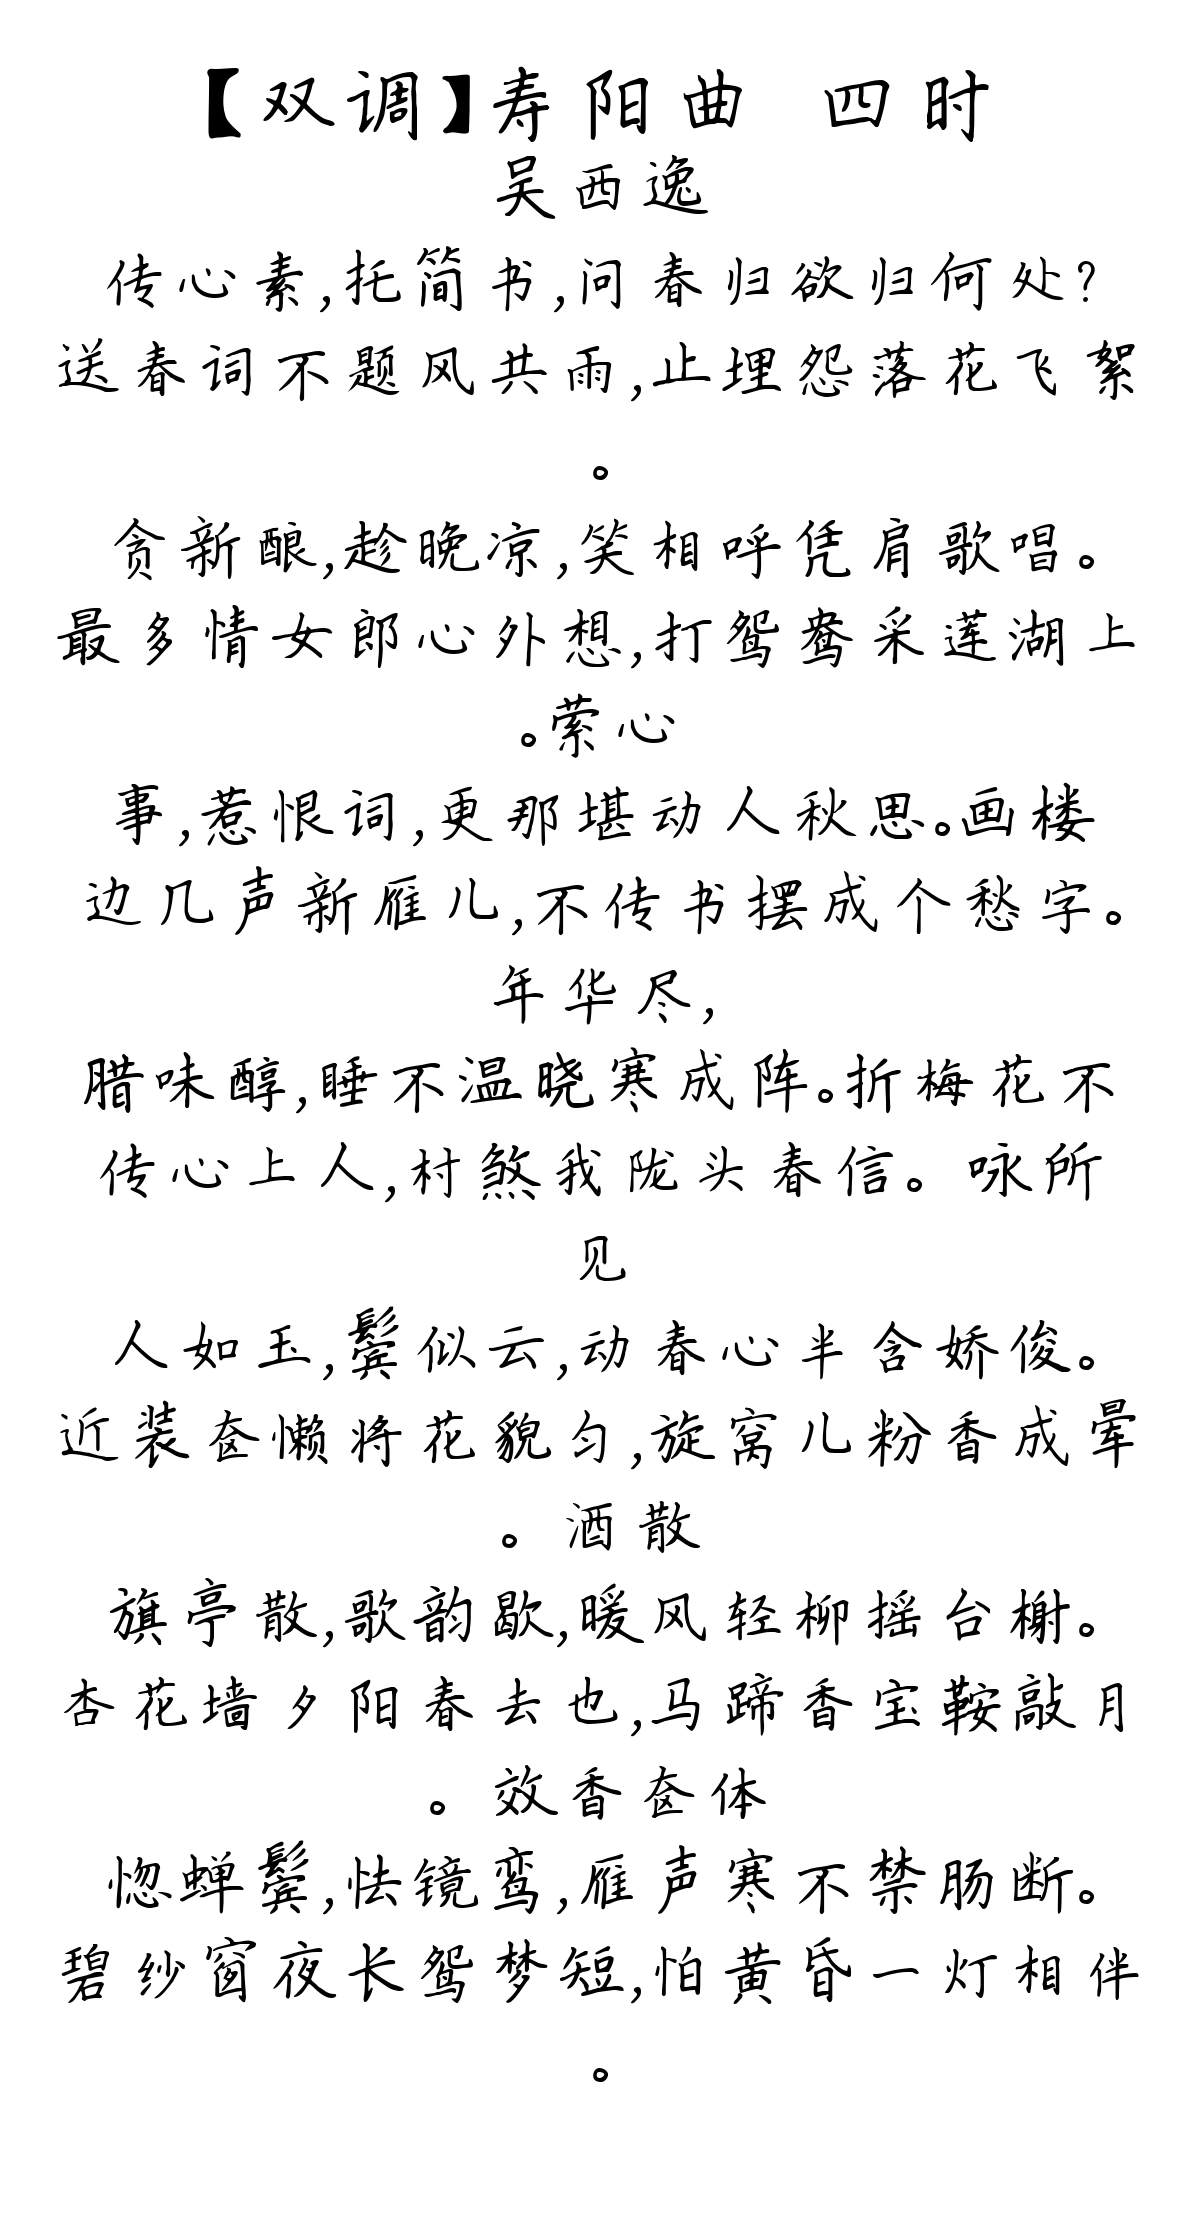 【双调】寿阳曲 四时
吴西逸
传心素,托简书,问春归欲归何处?
送春词不题风共雨,止埋怨落花飞絮
。
贪新酿,趁晚凉,笑相呼凭肩歌唱。
最多情女郎心外想,打鸳鸯采莲湖上
。萦心
事,惹恨词,更那堪动人秋思。画楼
边几声新雁儿,不传书摆成个愁字。
年华尽,
腊味醇,睡不温晓寒成阵。折梅花不
传心上人,村煞我陇头春信。 咏所
见
人如玉,鬓似云,动春心半含娇俊。
近装奁懒将花貌匀,旋窝儿粉香成晕
。 酒散
旗亭散,歌韵歇,暖风轻柳摇台榭。
杏花墙夕阳春去也,马蹄香宝鞍敲月
。 效香奁体
惚蝉鬓,怯镜鸾,雁声寒不禁肠断。
碧纱窗夜长鸳梦短,怕黄昏一灯相伴
。